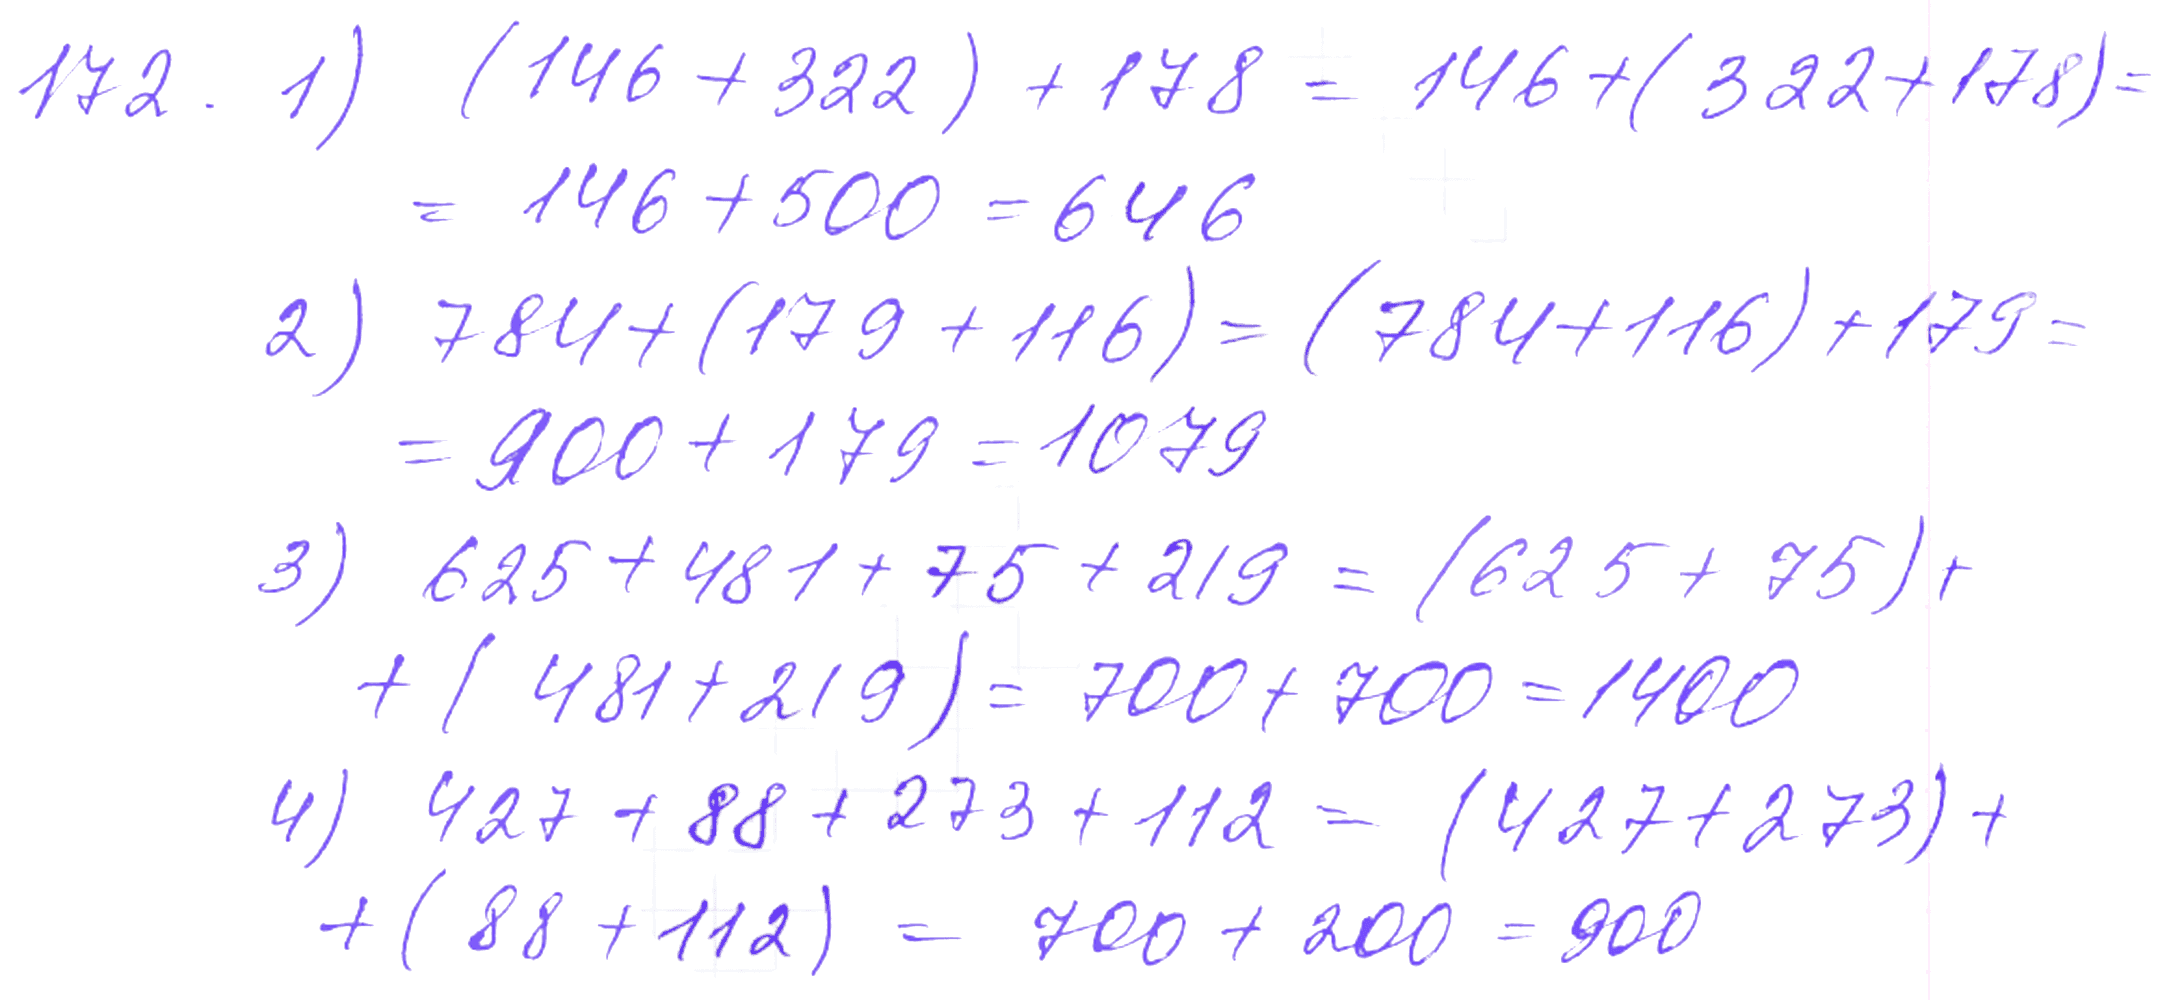 172. 1) (146+322)+178 = 146+(322+178)=
= 146+500 = 646
2) 784+(179+116)=(784+116)+179=
= 900+179=1079
3) 625+481+75+219 = (625+75)+
+(481+219)= 700+700=1400
4) 427+88+273+112 = (427+273)+
+(88+112) = 700+200 = 900